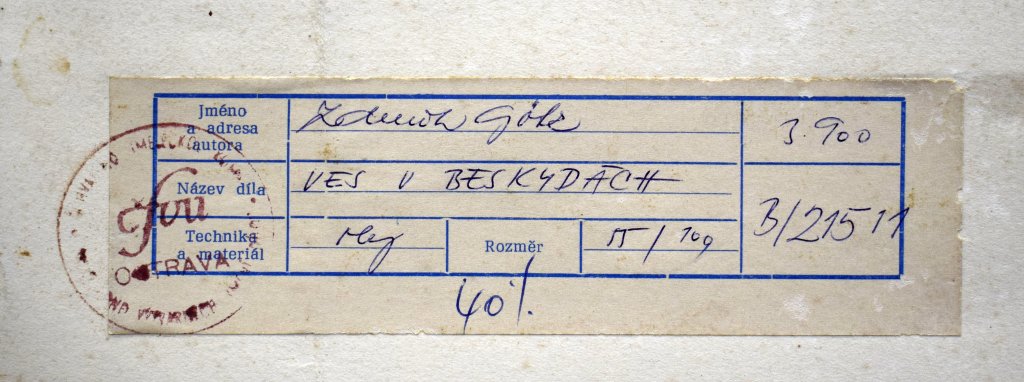 Jméno
a adresa
autora
Zdeněk Götz
3.900
Název díla
VES V BESKYDÁCH
B/21511
Technika
a materiál
olej
Rozměr
40%
čfvu
OSTRAVA